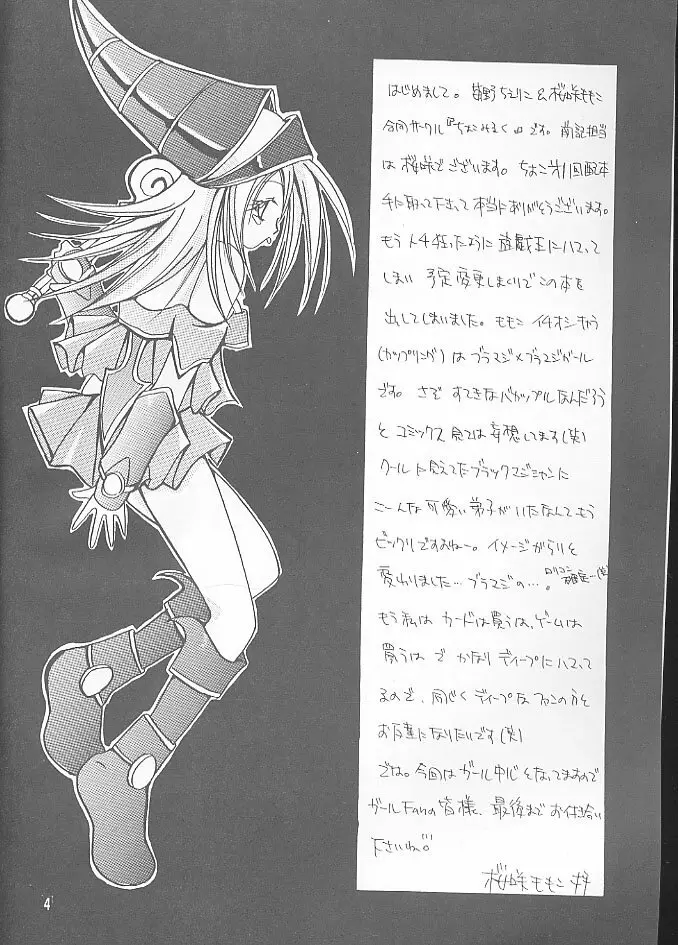 はじめまして。野ちえりこ&桜咲ももこ
合同サークル『ちょこみるく』です。前記担当
は桜咲でございます。ちょこオ1回配本
手に取って下さって本当にありがとうございます。
もう人4狂ったように遊戯王にハマって
しまい 予定変更しまくりでこの本を
出してしまいました。ももこ イチオシキャラ
(カップリング)はブラマジ×ブラマジガール
です。さぞ すてきなバカップルなんだろう
と コミックス 見ては妄想してます(笑)
クールに見えてたブラックマジシャンに
こーんな可愛い弟子がいたなんてもう
ビックリですよねー。イメージがらりと
変わりました…ブラマジの…。ロリコン確定…(笑)
もう私は カードは買うは、ゲームは
買うは で かなり ディープにハマって
るので、同じく ディープな ファンの方と
お友達になりたいです(笑)
では。今回はガール中心となってますので
ガールFanの皆様、最後まで お付き合い
下さいね。
桜咲ももこ 拝
4